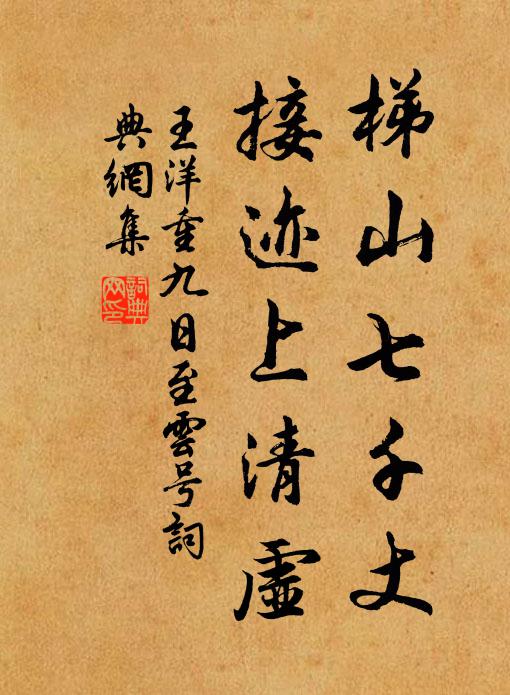 梯山七千丈
接迹上清虛
王洋重九日至雲号詞
典網集
詞典网印